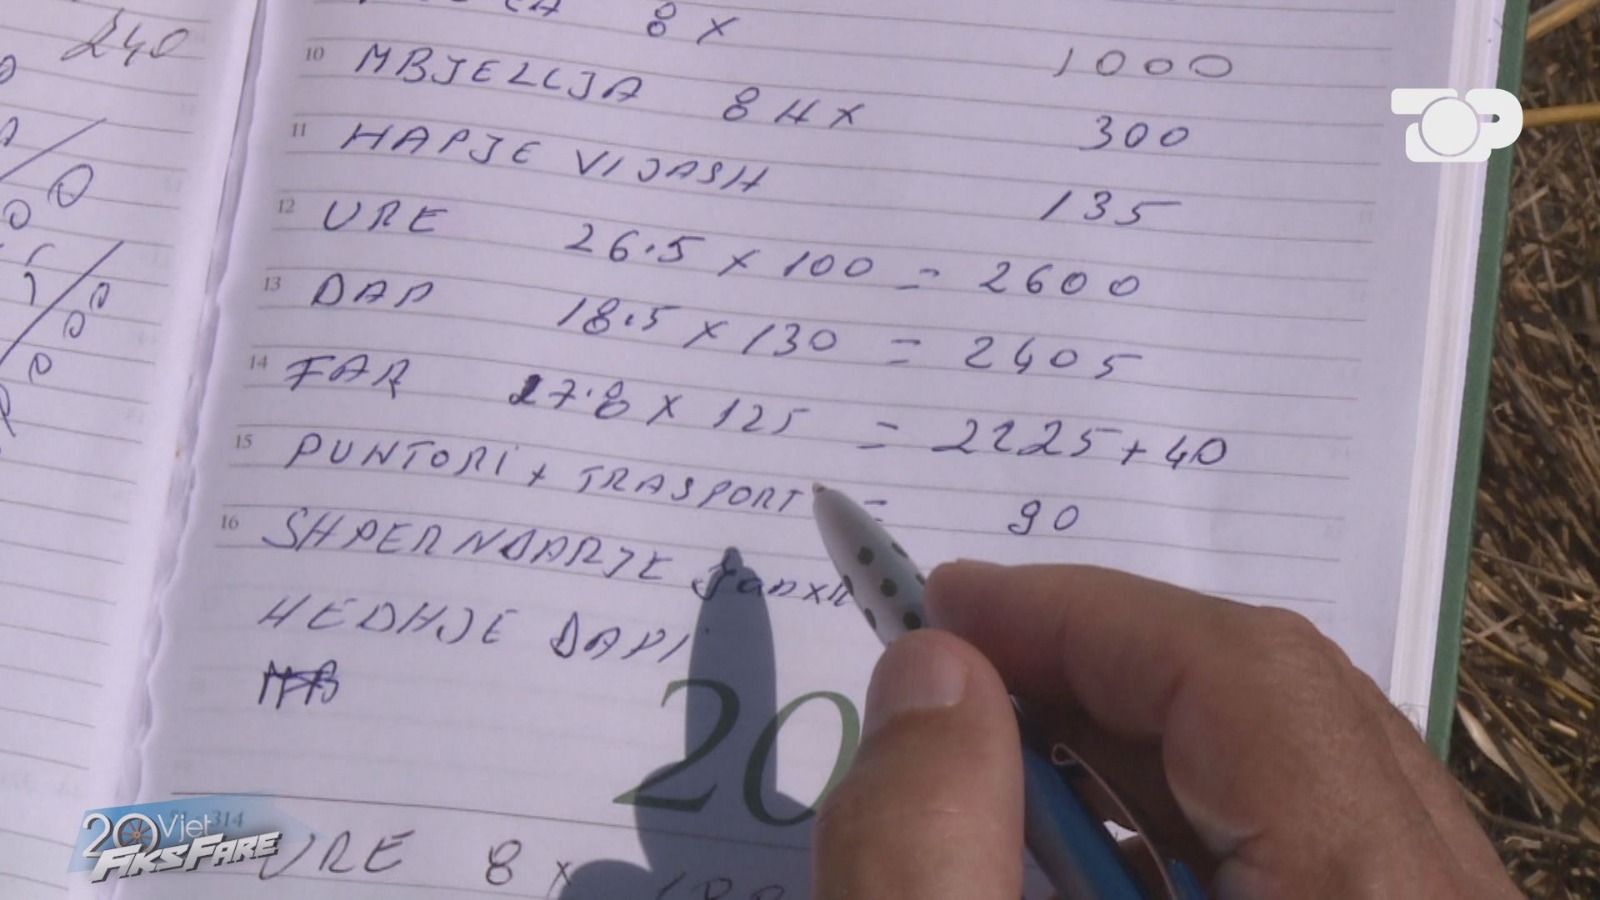 240
8 x 1000
10 MBJELLJA 8 H x 300
11 HAPJE VIJASH 135
12 URE 26.5 x 100 = 2600
13 DAP 18.5 x 130 = 2405
14 FAR 27.8 x 125 = 2225 + 40
15 PUNTORI + TRASPORT = 90
16 SHPERNDARJE
HEDHJE DAPI
20
314
URE 8 x
TOP
20 Vjet
FIKS FARE